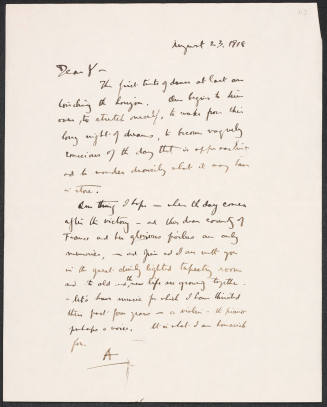 August 23. 1918
Dear Y—
The first tints of dawn at last are
touching the horizon. One begins to turn
over, to stretch oneself, to wake from this
long night of dreams, to become vaguely
conscious of the day that is approaching
and to wonder drowsily what it may have
in store.
One thing I hope — when the day comes
after the victory — and this dear country of
France and her glorious poilus are only
memories, — and and I are with you
in the great dimly lighted tapestry room
and the old and the new life are growing together —
— let's have music for which I have thirsted
these past four years — a violin — the piano
perhaps a voice. It is what I am homesick
for.
A